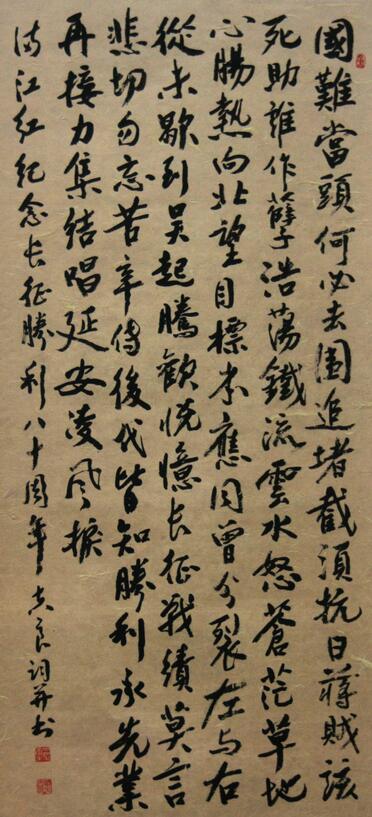 國難當頭何必去圍追堵截須抗日蔣賊該
死助誰作孽浩蕩鐵流雲水怒蒼茫草地
心腸熱向北望目標未應同曾分裂左与右
從未歇到吴起騰歡悦憶长征戰績莫言
悲切勿忘苦辛傳後代皆知勝利承先業
再接力集结唱延安凌风振
满江红纪念长征勝利八十周年吉良词并书